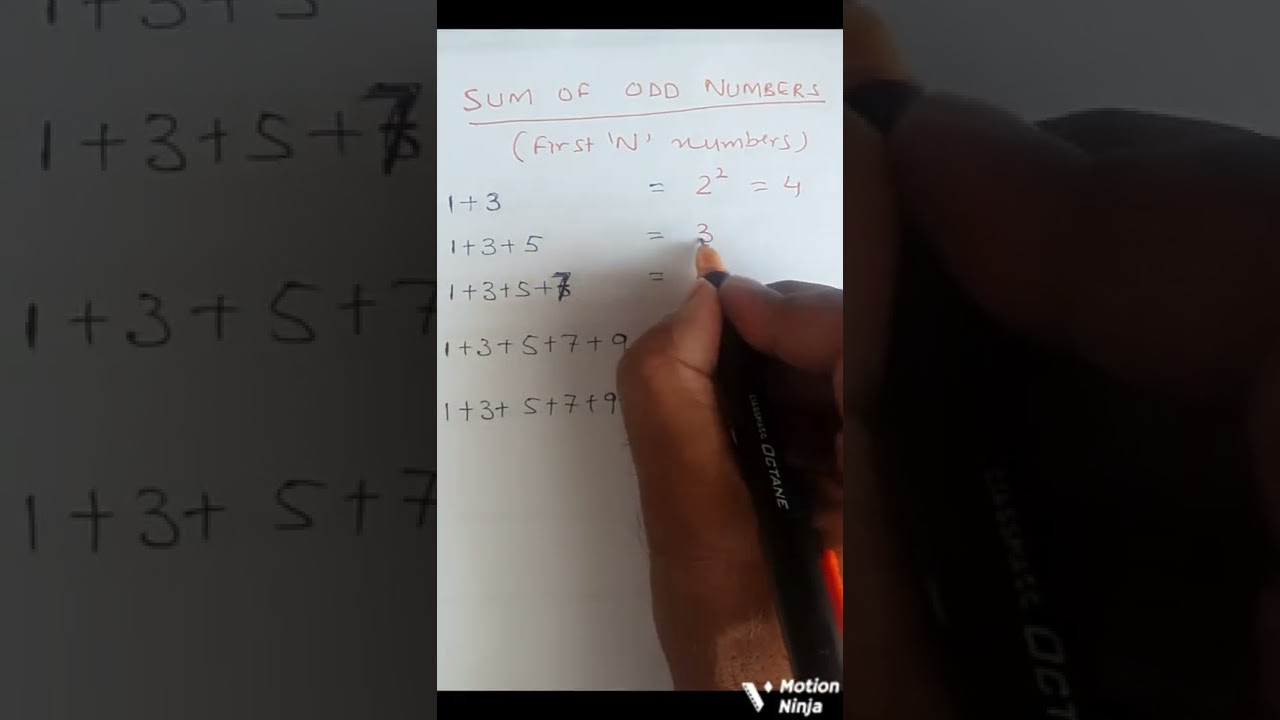 SUM OF ODD NUMBERS
(First 'N' numbers)
1+3 = 2² = 4
1+3+5 = 3
1+3+5+7 =
1+3+5+7+9
1+3+5+7+9
CLASSMATE OCTANE
Motion
Ninja